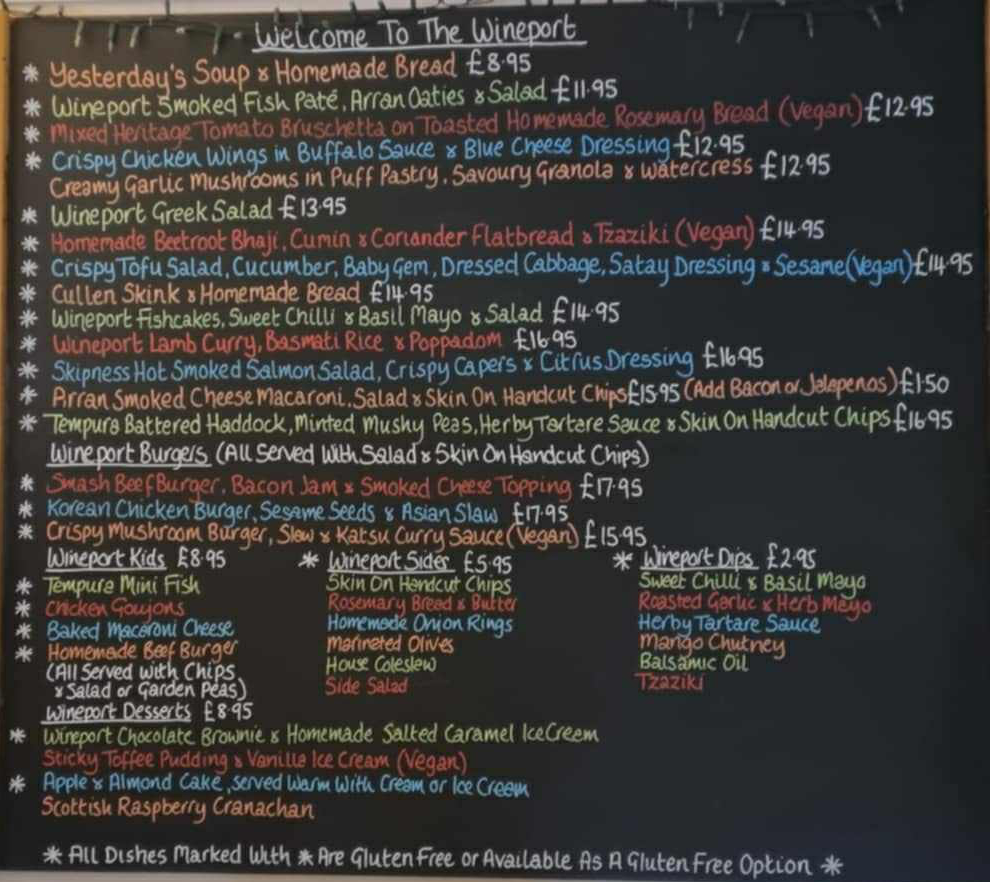 Welcome To The Wineport
* Yesterday's Soup & Homemade Bread £8.95
* Wineport Smoked Fish Paté, Arran Oaties & Salad £11.95
* Mixed Heritage Tomato Bruschetta on Toasted Homemade Rosemary Bread (Vegan) £12.95
* Crispy Chicken Wings in Buffalo Sauce & Blue Cheese Dressing £12.95
Creamy Garlic Mushrooms in Puff Pastry, Savoury Granola & Watercress £12.95
* Wineport Greek Salad £13.95
* Homemade Beetroot Bhaji, Cumin & Coriander Flatbread & Tzaziki (Vegan) £14.95
* Crispy Tofu Salad, Cucumber, Baby Gem, Dressed Cabbage, Satay Dressing & Sesame (Vegan) £14.95
* Cullen Skink & Homemade Bread £14.95
* Wineport Fishcakes, Sweet Chilli & Basil Mayo & Salad £14.95
* Wineport Lamb Curry, Basmati Rice & Poppadom £16.95
* Skipness Hot Smoked Salmon Salad, Crispy Capers & Citrus Dressing £16.95
* Arran Smoked Cheese Macaroni, Salad & Skin On Handcut Chips £15.95 (Add Bacon or Jalepenos) £1.50
* Tempura Battered Haddock, Minted Mushy Peas, Herby Tartare Sauce & Skin On Handcut Chips £16.95
Wineport Burgers (All Served With Salad & Skin On Handcut Chips)
* Smash Beef Burger, Bacon Jam & Smoked Cheese Topping £17.95
* Korean Chicken Burger, Sesame Seeds & Asian Slaw £17.95
* Crispy Mushroom Burger, Slaw & Katsu Curry Sauce (Vegan) £15.95
Wineport Kids £8.95
* Tempura Mini Fish
* Chicken Goujons
* Baked Macaroni Cheese
* Homemade Beef Burger
(All Served with Chips
& Salad or Garden Peas)
* Wineport Sides £5.95
Skin On Handcut Chips
Rosemary Bread & Butter
Homemade Onion Rings
Marinated Olives
House Coleslew
Side Salad
* Wineport Dips £2.95
Sweet Chilli & Basil Mayo
Roasted Garlic & Herb Mayo
Herby Tartare Sauce
Mango Chutney
Balsamic Oil
Tzaziki
Wineport Desserts £8.95
* Wineport Chocolate Brownie & Homemade Salted Caramel Ice Cream
Sticky Toffee Pudding & Vanilla Ice Cream (Vegan)
* Apple & Almond Cake, Served Warm With Cream or Ice Cream
Scottish Raspberry Cranachan
* All Dishes Marked With * Are Gluten Free or Available As A Gluten Free Option *